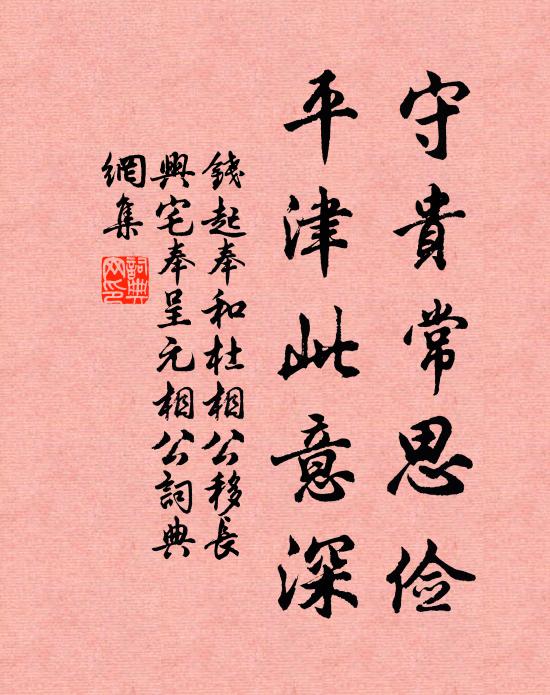 守貴常思俭
平津此意深
錢起奉和杜相公移長
興宅奉呈元相公詞典
網集
詞典
网印